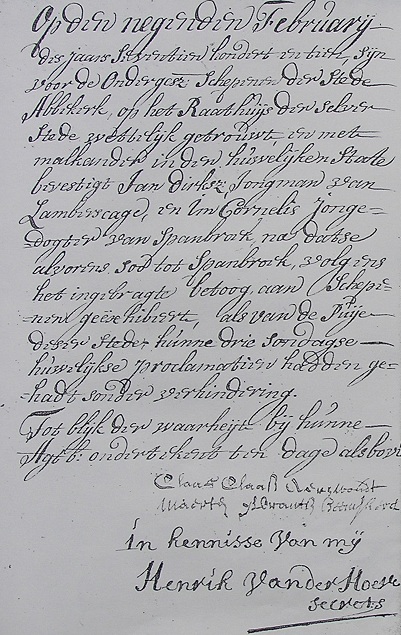 Op den negenden February
des jaars seventien hondert en tien, sijn
voor de Ondergesz: Schepenen der Stede
Abbikerk, op het Raathuijs der selver
Stede wettelijk getrouwt, en met
malkander in den huwelijken Staate
bevestigt Jan Dirksz, Jongman van
Lambertscage, en Im Cornelis Jonge-
-dogter van Spanbroek, na datse
alvorens soo tot Spanbroek, volgens
het ingebragte betoog aan Schepe-
nen geëxhibeert, als van de Puije
deser Stede, hunne drie sondagse
huwelijkse proclamatien hadden ge-
-hadt sonder verhindering.
Tot blijk der waarheijt bij hunne
Agtb: ondertekent ten dage als bove
Claas Claasz
Maerten
In kennisse van mij
Henrik vander Hoeve
Secrets